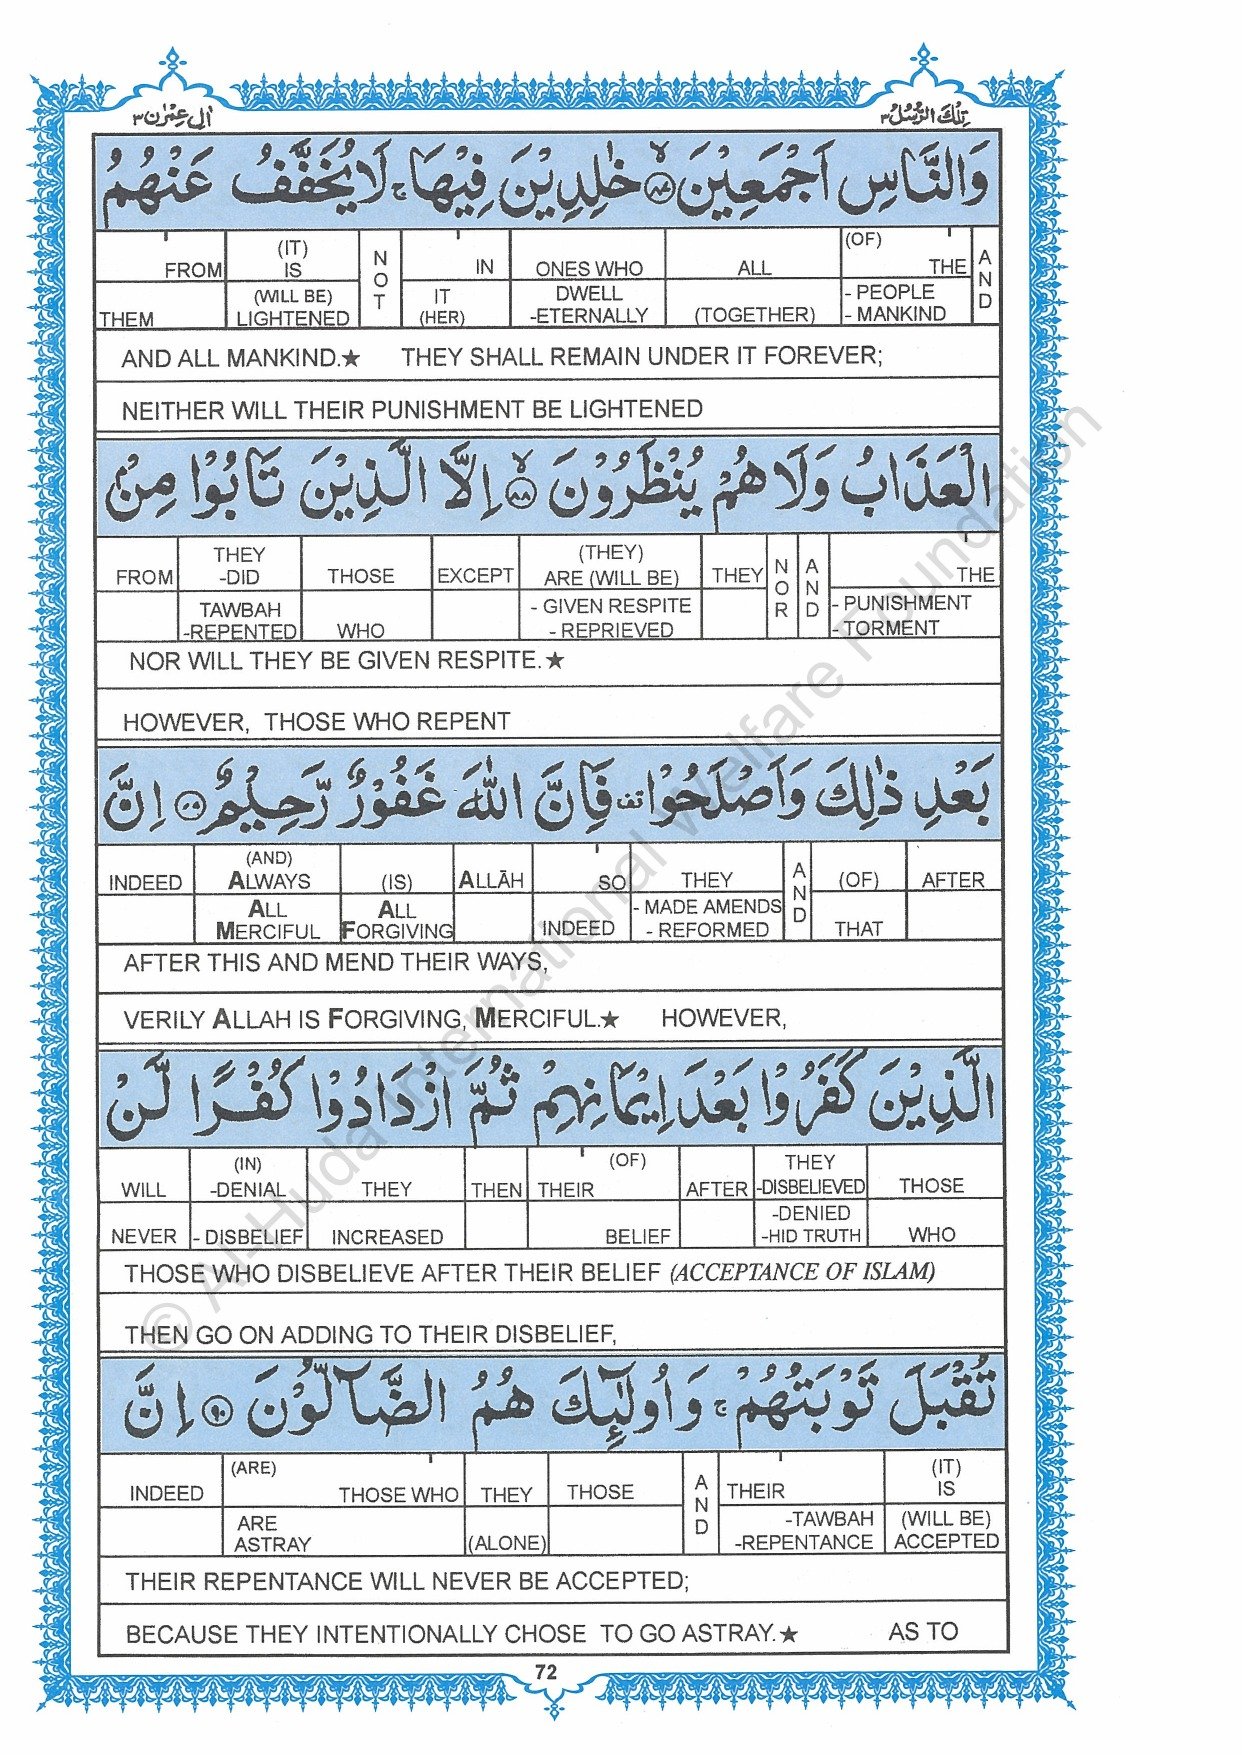 اٰل عمرٰن ٣ تلك الرسل ٣
وَالنَّاسِ اَجْمَعِيْنَ ﴿٨٧﴾ خٰلِدِيْنَ فِيْهَا ج لَا يُخَفَّفُ عَنْهُمُ
FROM (IT) IS NOT IN ONES WHO ALL (OF) THE AND
THEM (WILL BE) LIGHTENED IT (HER) DWELL -ETERNALLY (TOGETHER) - PEOPLE - MANKIND
AND ALL MANKIND.★ THEY SHALL REMAIN UNDER IT FOREVER;
NEITHER WILL THEIR PUNISHMENT BE LIGHTENED
الْعَذَابُ وَلَا هُمْ يُنْظَرُوْنَ ﴿٨٨﴾ اِلَّا الَّذِيْنَ تَابُوْا مِنْۢ
FROM THEY -DID THOSE EXCEPT (THEY) ARE (WILL BE) THEY NOR AND THE
TAWBAH -REPENTED WHO - GIVEN RESPITE - REPRIEVED - PUNISHMENT - TORMENT
NOR WILL THEY BE GIVEN RESPITE.★
HOWEVER, THOSE WHO REPENT
بَعْدِ ذٰلِكَ وَاَصْلَحُوْا قف فَاِنَّ اللّٰهَ غَفُوْرٌ رَّحِيْمٌ ﴿٨٩﴾ اِنَّ
INDEED (AND) ALWAYS (IS) ALLĀH SO THEY AND (OF) AFTER
ALL MERCIFUL ALL FORGIVING INDEED - MADE AMENDS - REFORMED THAT
AFTER THIS AND MEND THEIR WAYS,
VERILY ALLAH IS FORGIVING, MERCIFUL.★ HOWEVER,
الَّذِيْنَ كَفَرُوْا بَعْدَ اِيْمَانِهِمْ ثُمَّ ازْدَادُوْا كُفْرًا لَّنْ
WILL (IN) -DENIAL THEY THEN THEIR (OF) AFTER THEY -DISBELIEVED THOSE
NEVER - DISBELIEF INCREASED BELIEF -DENIED -HID TRUTH WHO
THOSE WHO DISBELIEVE AFTER THEIR BELIEF (ACCEPTANCE OF ISLAM)
THEN GO ON ADDING TO THEIR DISBELIEF,
تُقْبَلَ تَوْبَتُهُمْ ج وَاُولٰٓئِكَ هُمُ الضَّآلُّوْنَ ﴿٩٠﴾ اِنَّ
INDEED (ARE) THOSE WHO THEY THOSE AND THEIR (IT) IS
ARE ASTRAY (ALONE) -TAWBAH -REPENTANCE (WILL BE) ACCEPTED
THEIR REPENTANCE WILL NEVER BE ACCEPTED;
BECAUSE THEY INTENTIONALLY CHOSE TO GO ASTRAY.★ AS TO
72
© Al-Huda International Welfare Foundation